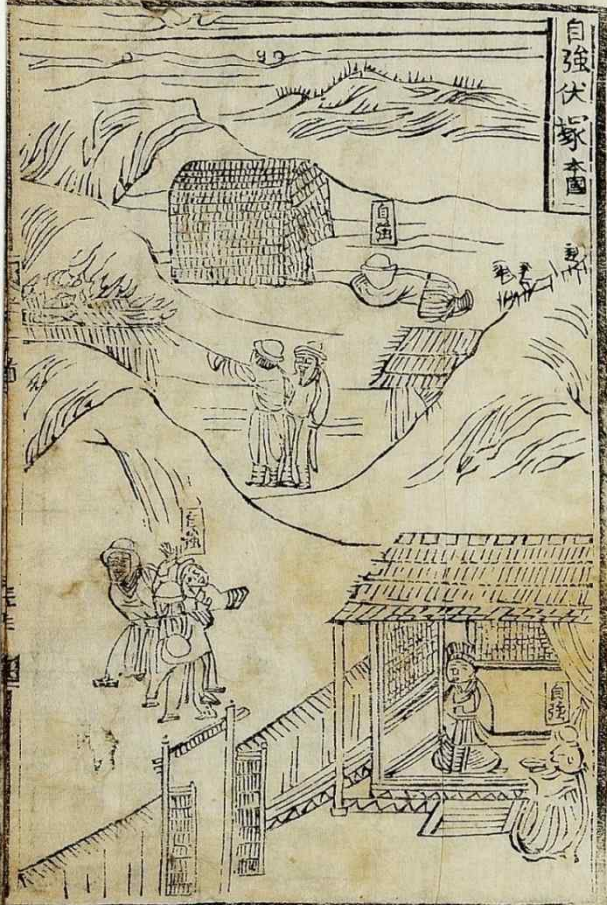 自強伏塚 本國
自強
自強
自強